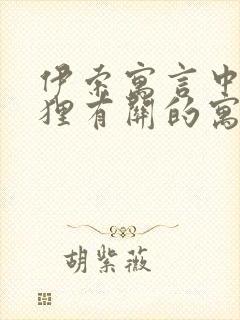 伊索寓言中
狸有關的寓
胡紫薇